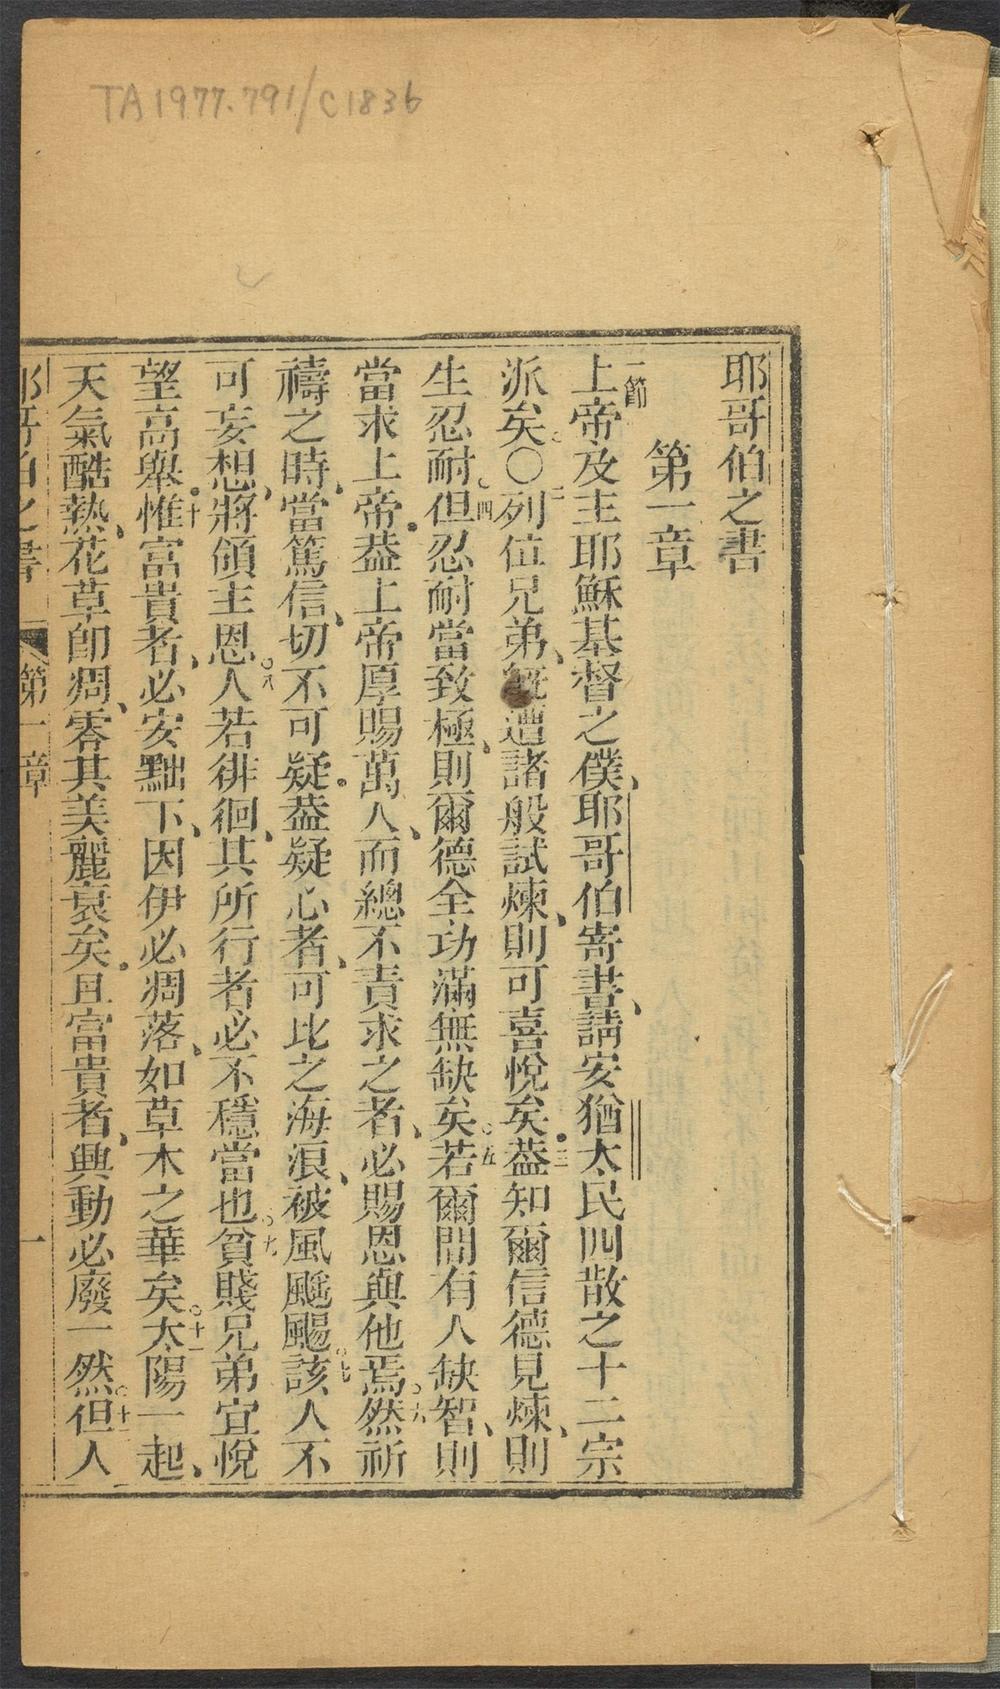 TA 1977.791/C1836
耶哥伯之書
第一章
一節
上帝及主耶穌基督之僕、耶哥伯寄書、請安猶太民四散之十二宗
派矣。○二列位兄弟、旣遭諸般試煉、則可喜悅矣。三葢知爾信德見煉、則
生忍耐。四但忍耐當致極、則爾德全功滿無缺矣。五若爾間有人缺智、則
當求上帝。葢上帝厚賜萬人、而總不責求之者、必賜恩與他焉。六然祈
禱之時、當篤信、切不可疑。葢疑心者、可比之海浪、被風颺。七該人不
可妄想、將領主恩。八人若徘徊、其所行者必不穩當也。九貧賤兄弟宜悅
望高舉。十惟富貴者、必安黜下、因伊必凋落、如草木之華矣。十一太陽一起、
天氣酷熱、花草卽凋、零其美麗衰矣。且富貴者、興動必廢一然。十二但人
耶哥伯之書 第一章 一